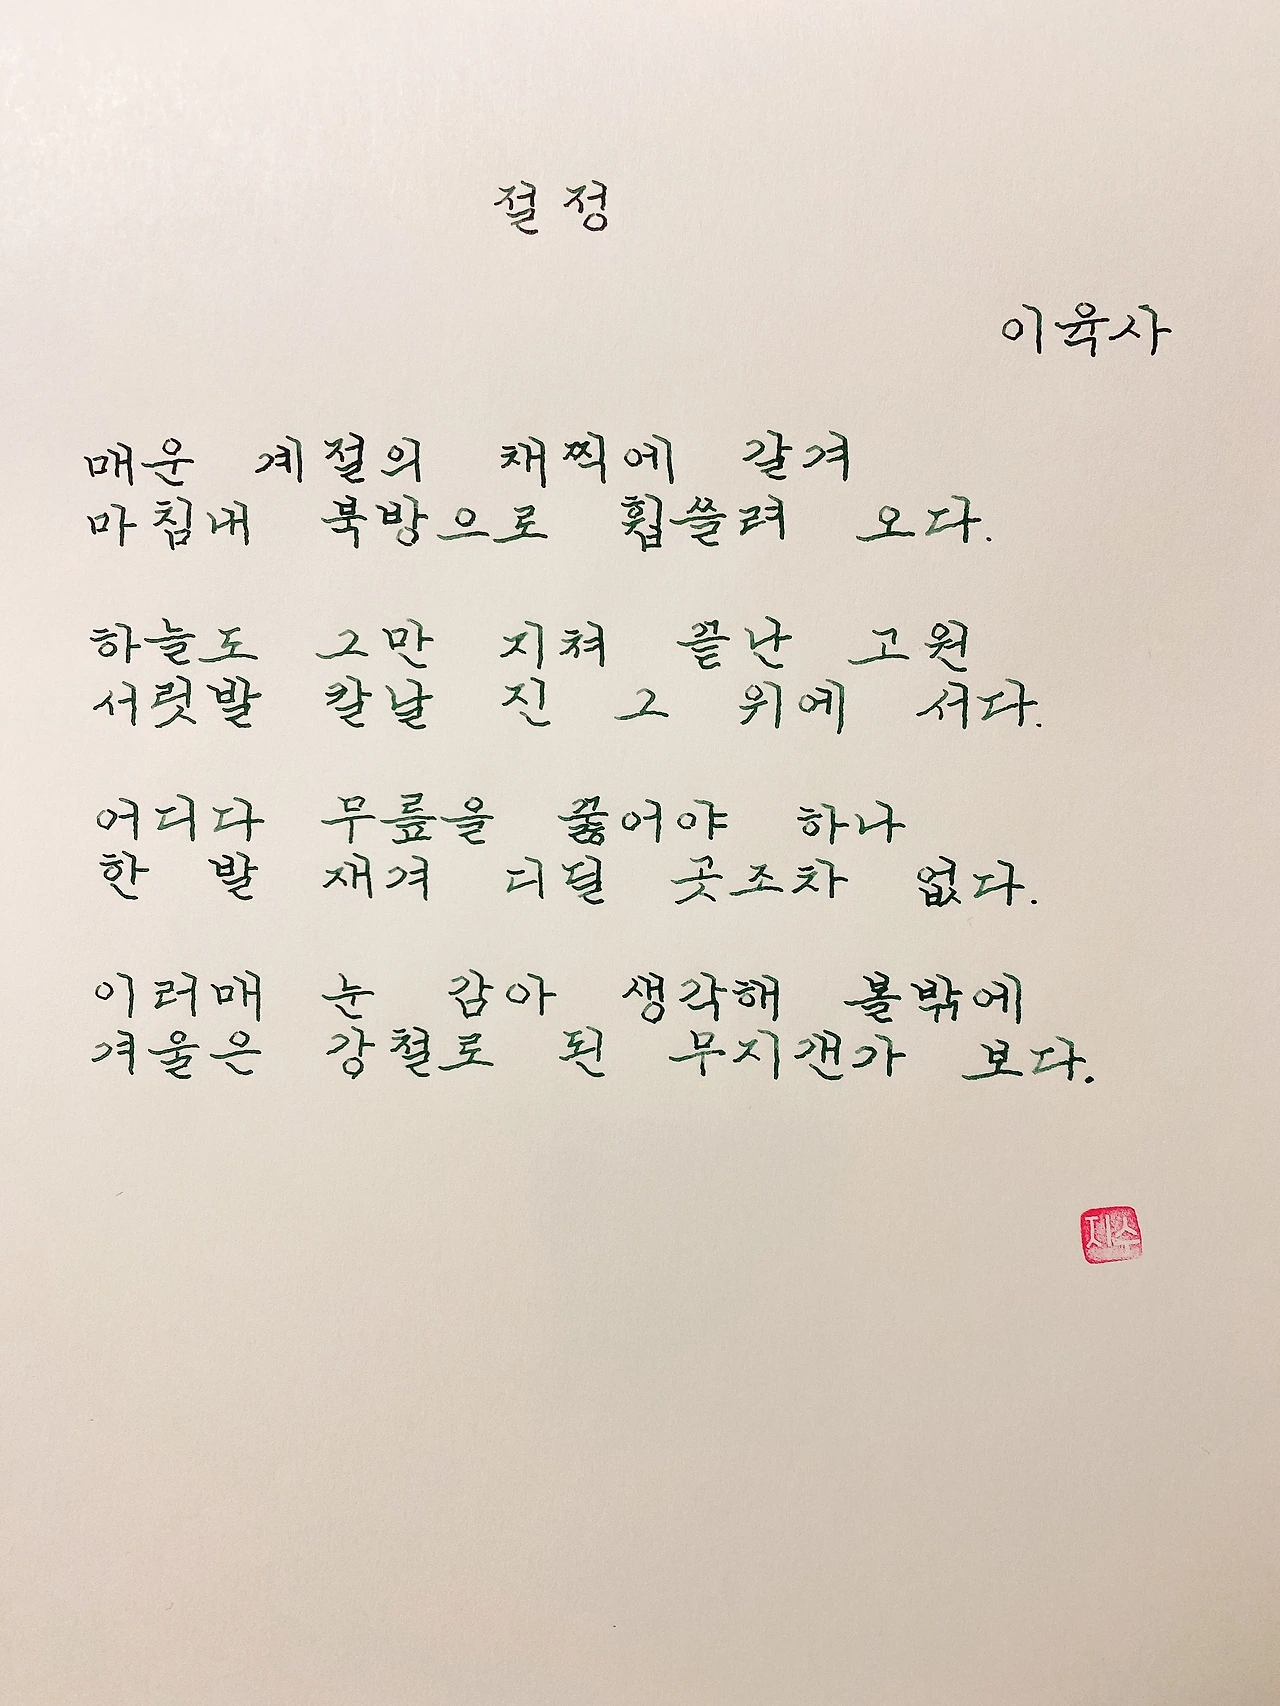 절정
이육사
매운 계절의 채찍에 갈겨
마침내 북방으로 휩쓸려 오다.
하늘도 그만 지쳐 끝난 고원
서릿발 칼날 진 그 위에 서다.
어디다 무릎을 꿇어야 하나
한 발 재겨 디딜 곳조차 없다.
이러매 눈 감아 생각해 볼밖에
겨울은 강철로 된 무지갠가 보다.
자수